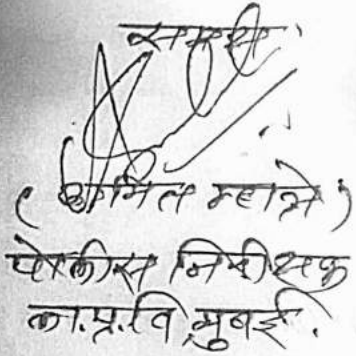 समक्ष
(अमित म्हात्रे)
पोलीस निरीक्षक
ला.प्र.वि, मुंबई.